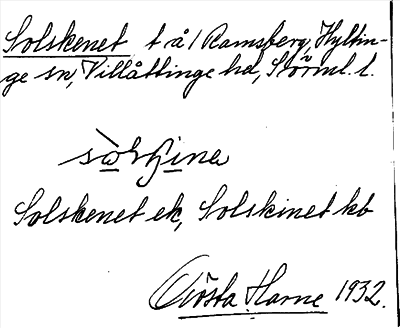 Solskenet t å / Ramsberg, Hyltin-
ge sn, Villåttinge hd, Störml. l.
Solskenet ek, Solskinet kb
Gösta Harne 1932.